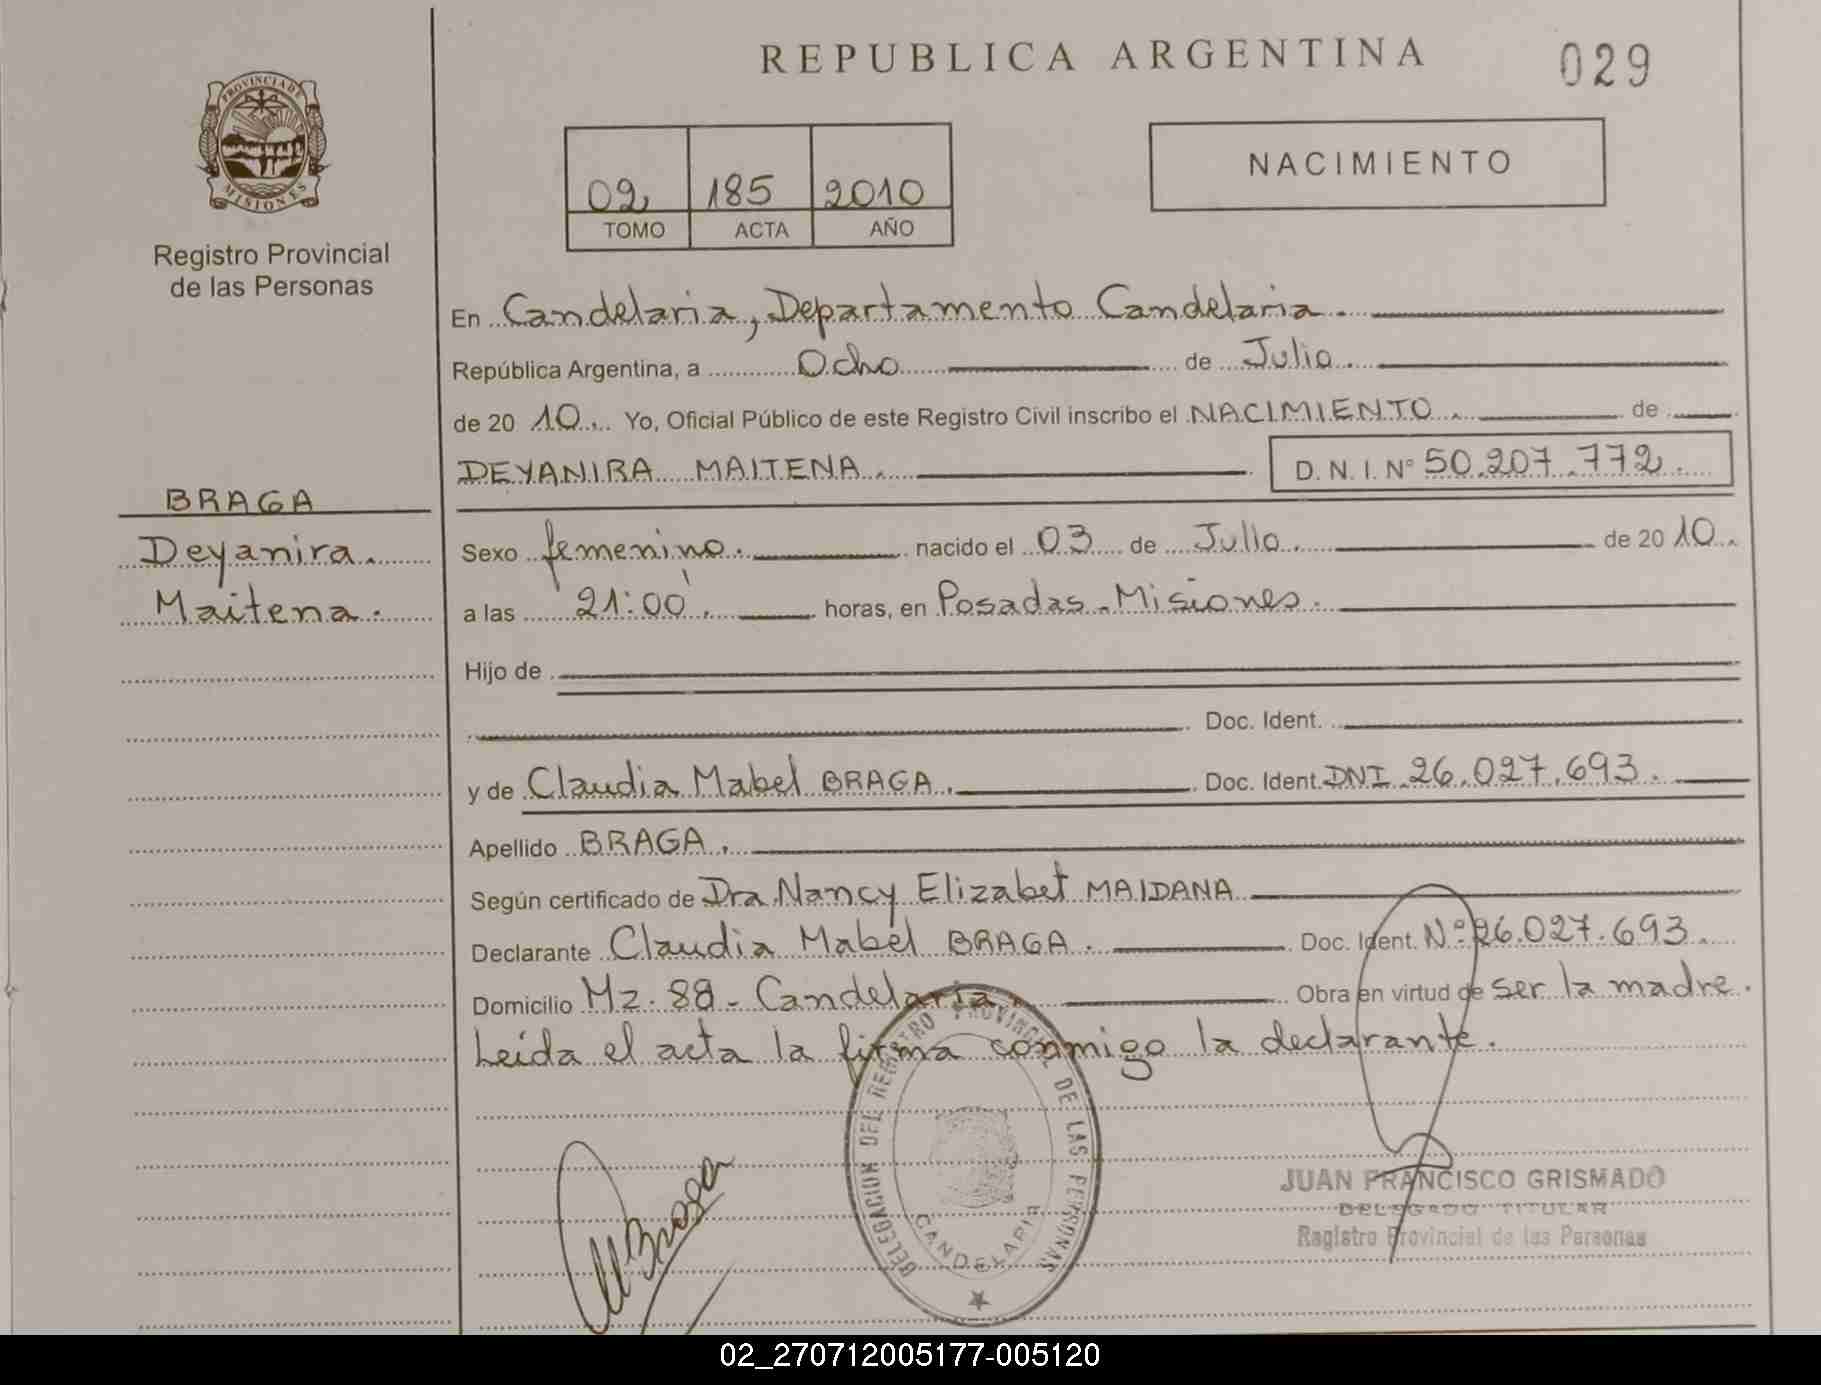 REPUBLICA ARGENTINA
029
PROVINCIA DE
MISIONES
Registro Provincial
de las Personas
02 185 2010
TOMO ACTA AÑO
NACIMIENTO
En Candelaria, Departamento Candelaria.
República Argentina, a Ocho de Julio.
de 20 10. Yo, Oficial Público de este Registro Civil inscribo el NACIMIENTO. de
DEYANIRA MAITENA. D. N. I. N° 50.207.772.
BRAGA
Deyanira.
Maitena.
Sexo femenino. nacido el 03 de Julio. de 20 10.
a las 21:00'. horas, en Posadas-Misiones.
Hijo de
Doc. Ident.
y de Claudia Mabel BRAGA. Doc. Ident. DNI 26.027.693.
Apellido BRAGA.
Según certificado de Dra Nancy Elizabet MAIDANA
Declarante Claudia Mabel BRAGA. Doc. Ident. N° 26.027.693.
Domicilio Mz. 88 - Candelaria. Obra en virtud de ser la madre.
Leída el acta la firma conmigo la declarante.
DELEGACION DEL REGISTRO PROVINCIAL DE LAS PERSONAS
CANDELARIA
JUAN FRANCISCO GRISMADO
DELEGADO TITULAR
Registro Provincial de las Personas
02_270712005177-005120